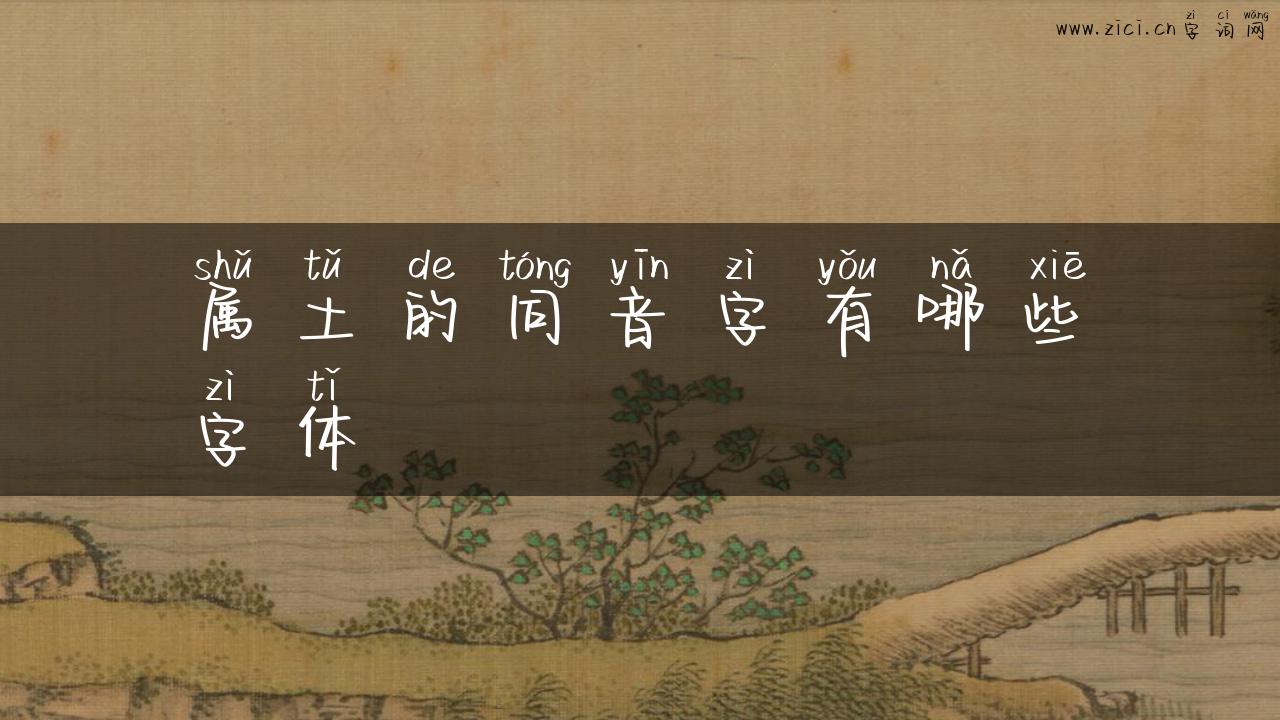 zì cí wǎng
www.zici.cn字词网
shǔ tǔ de tóng yīn zì yǒu nǎ xiē
属土的同音字有哪些
zì tǐ
字体